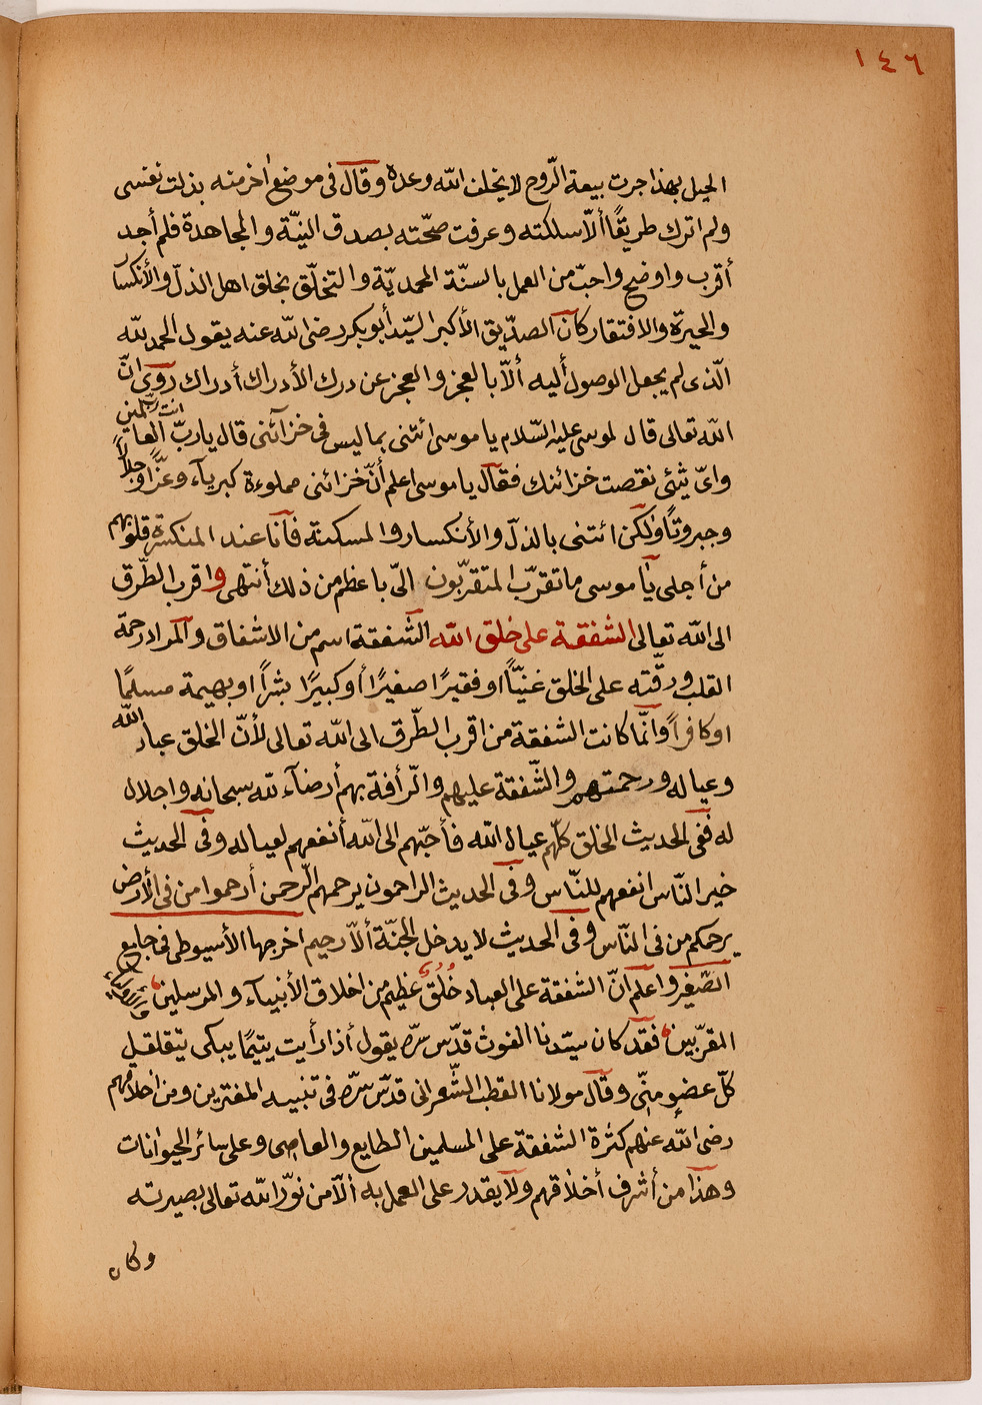 ١٤٦
الحيل بهذا جرت بيعة الرّوح لا يخلف الله وعده وقال في موضع اخر منه بذلت نفسي
ولم اترك طريقًا ألّا سلكته وعرفت صحّته بصدق النيّة والمجاهدة فلم أجد
أقرب واوضح واحبّ من العمل بالسنّة المحمديّة والتخلّق بخلق اهل الذلّ والأنكسار
والحيرة والافتقار كان الصدّيق الأكبر السيّد أبو بكر رضى الله عنه يقول الحمد لله
الّذى لم يجعل الوصول أليه ألّا بالعجز والعجز عن درك الأدراك أدراك روى انّ
الله تعالى قال لموسى عليه السّلام يا موسى ائتنى بما ليس في خزآئنى قال ياربّ انت ربّ العالمين
واىّ شئ نقصت خزائنك فقال ياموسى اعلم أنّ خزائنى مملوءة كبريآء وعزًّا وجلالًا
وجبروتًا ولكن ائتنى بالذلّ والأنكسار والمسكنة فآنا عند المنكسرة قلوبهم
من أجلى يا موسى ما تقرّب المتقرّبون الىّ باعظم من ذلك أنتهى واقرب الطّرق
الى الله تعالى الشفقة على خلق الله الشّفقة اسم من الاشفاق والمراد رحمة
القلب ورقّته على الخلق غنيًّا او فقيرًا صغيرًا أو كبيرًا بشرًا او بهيمة مسلمًا
او كافرًا وانّما كانت الشفقة من اقرب الطّرق الى الله تعالى لأنّ الخلق عباد الله
وعياله ورحمتهم والشّفقة عليهم والرّأفة بهم أرضآء لله سبحانه واجلال
له ففى الحديث الخلق كلّهم عيال الله فأحبّهم الى الله أنفعهم لعياله وفى الحديث
خير النّاس انفعهم للنّاس وفى الحديث الراحمون يرحمهم الرّحمن أرحموا من في الأرض
يرحمكم من في النّاس وفى الحديث لا يدخل الجنّة ألّا رحيم اخرجها الأسيوطى في جامع
الصّغير واعلم انّ الشفقة على العباد خُلُقٌ عظيم من اخلاق الأنبيآء والمرسلين
المقرّبين فقد كان سيّدنا الغوث قدّس سرّه يقول أذا رأيت يتيمًا يبكى يتقلقل
كلّ عضو منّى وقال مولانا القطب الشّعرانى قدّس سرّه في تنبيه المغترين ومن اخلاقهم
رضى الله عنهم كثرة الشفقة على المسلمين الطايع والعاصى وعلى سائر الحيوانات
وهذا من أشرف أخلاقهم ولا يقدر على العمل به ألّا من نوّر الله تعالى بصيرته
وكان